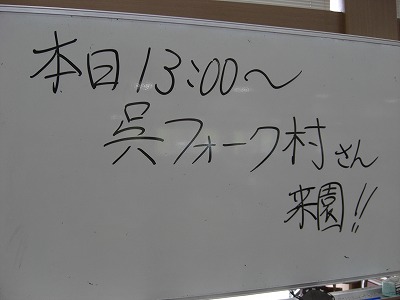 本日13:00～
呉フォーク村さん
来園!!